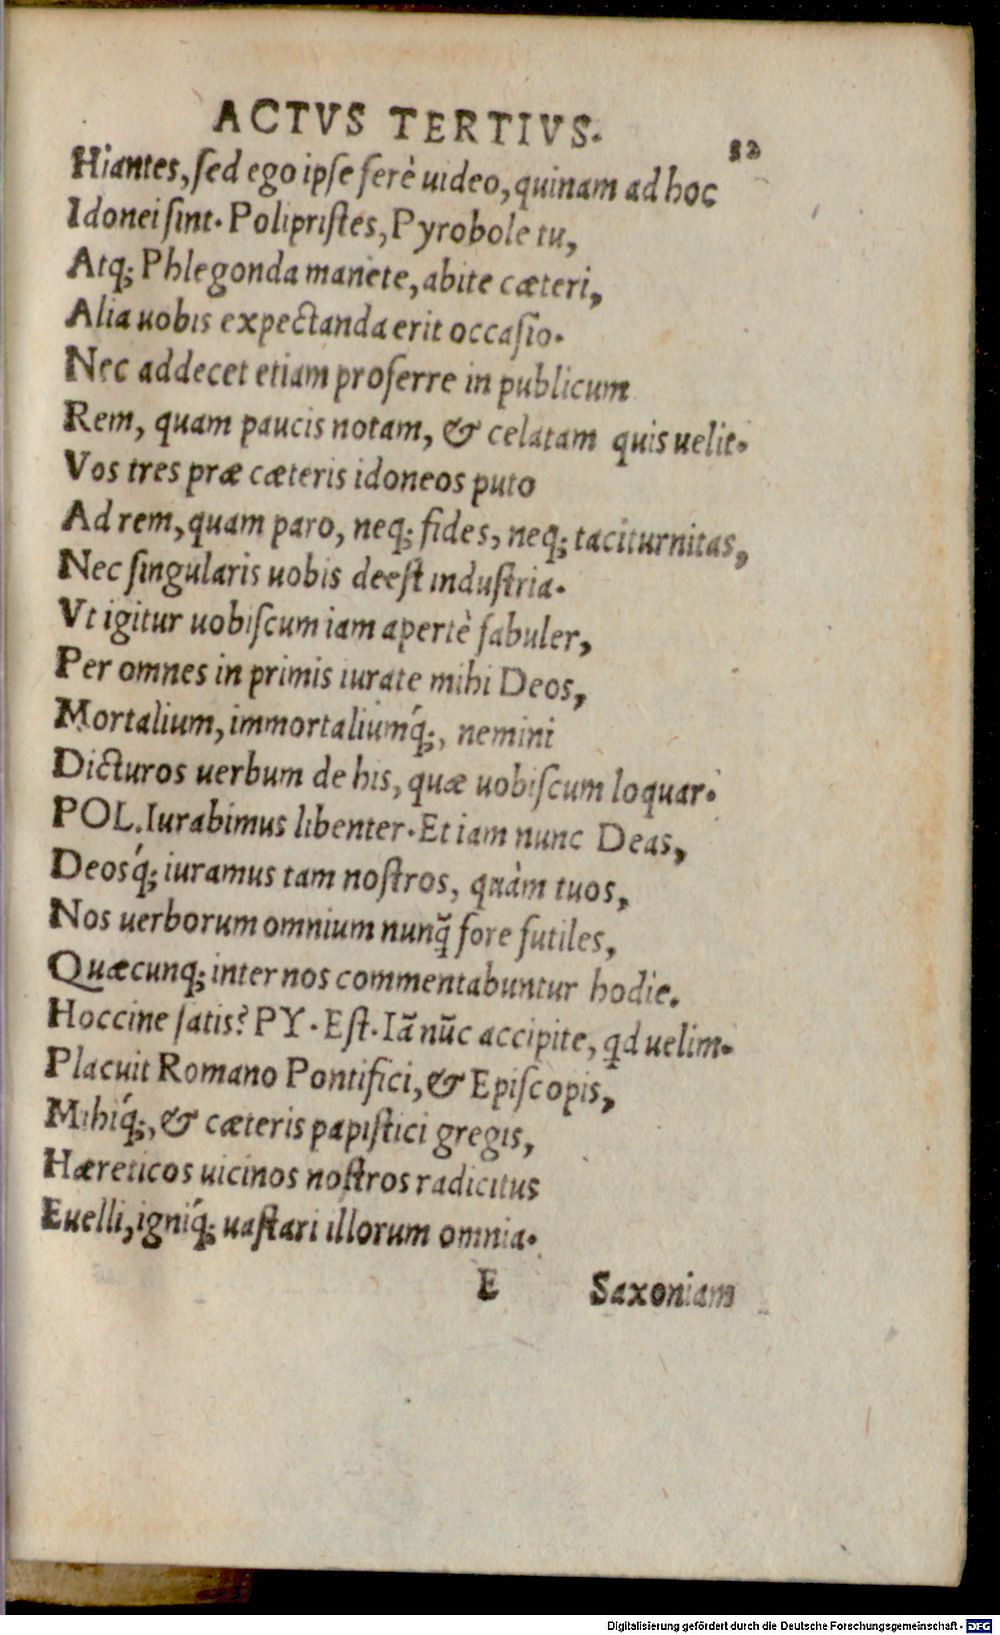 ACTVS TERTIVS.
52
Hiantes, ſed ego ipſe ferè uideo, quinam ad hoc
Idonei ſint. Polipriſtes, Pyrobole tu,
Atq; Phlegonda manete, abite cæteri,
Alia uobis expectanda erit occaſio.
Nec addecet etiam proferre in publicum
Rem, quam paucis notam, & celatam quis uelit.
Vos tres præ cæteris idoneos puto
Ad rem, quam paro, neq; fides, neq; taciturnitas,
Nec ſingularis uobis deeſt induſtria.
Vt igitur uobiſcum iam apertè fabuler,
Per omnes in primis iurate mihi Deos,
Mortalium, immortaliumq́;, nemini
Dicturos uerbum de his, quæ uobiſcum loquar.
POL. Iurabimus libenter. Et iam nunc Deas,
Deosq́; iuramus tam noſtros, quàm tuos,
Nos uerborum omnium nunq̃ fore futiles,
Quæcunq; inter nos commentabuntur hodie.
Hoccine ſatis? PY. Eſt. Iã nũc accipite, qd uelim.
Placuit Romano Pontifici, & Epiſcopis,
Mihiq́;, & cæteris papiſtici gregis,
Hæreticos uicinos noſtros radicitus
Euelli, igniq́; uaſtari illorum omnia.
E Saxoniam
Digitalisierung gefördert durch die Deutsche Forschungsgemeinschaft - DFG